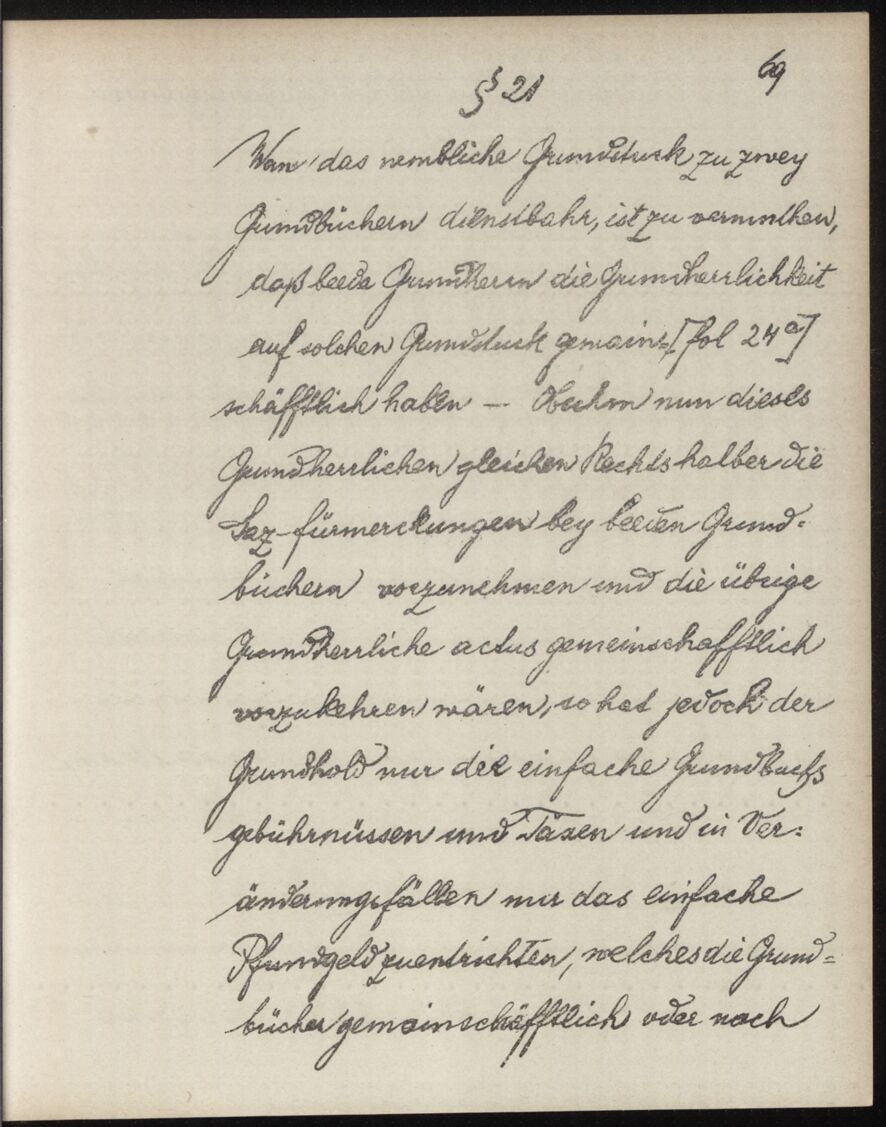 69
§ 21
Wan das nembliche Grundstuck zu zwey
Grundbüchern dienstbahr, ist zu vermuthen,
daß beede Grundherrn die Grundherrlichkeit
auf solchen Grundstuck gemain=[fol 24a]
schäfftlich haben — Obschon nun dieses
Grundherrlichen gleichen Rechts halber die
Saz-fürmerckungen bey beeden Grund=
büchern vorzunehmen und die übrige
Grundherrliche actus gemeinschafftlich
vorzukehren wären, so hat jedoch der
Grundhold nur die einfache Grundbuchs
gebührnüssen und Täxen und in Ver=
änderungsfällen nur das einfache
Pfundgeld zuentrichten, welches die Grund=
bücher gemainschäfftlich oder nach